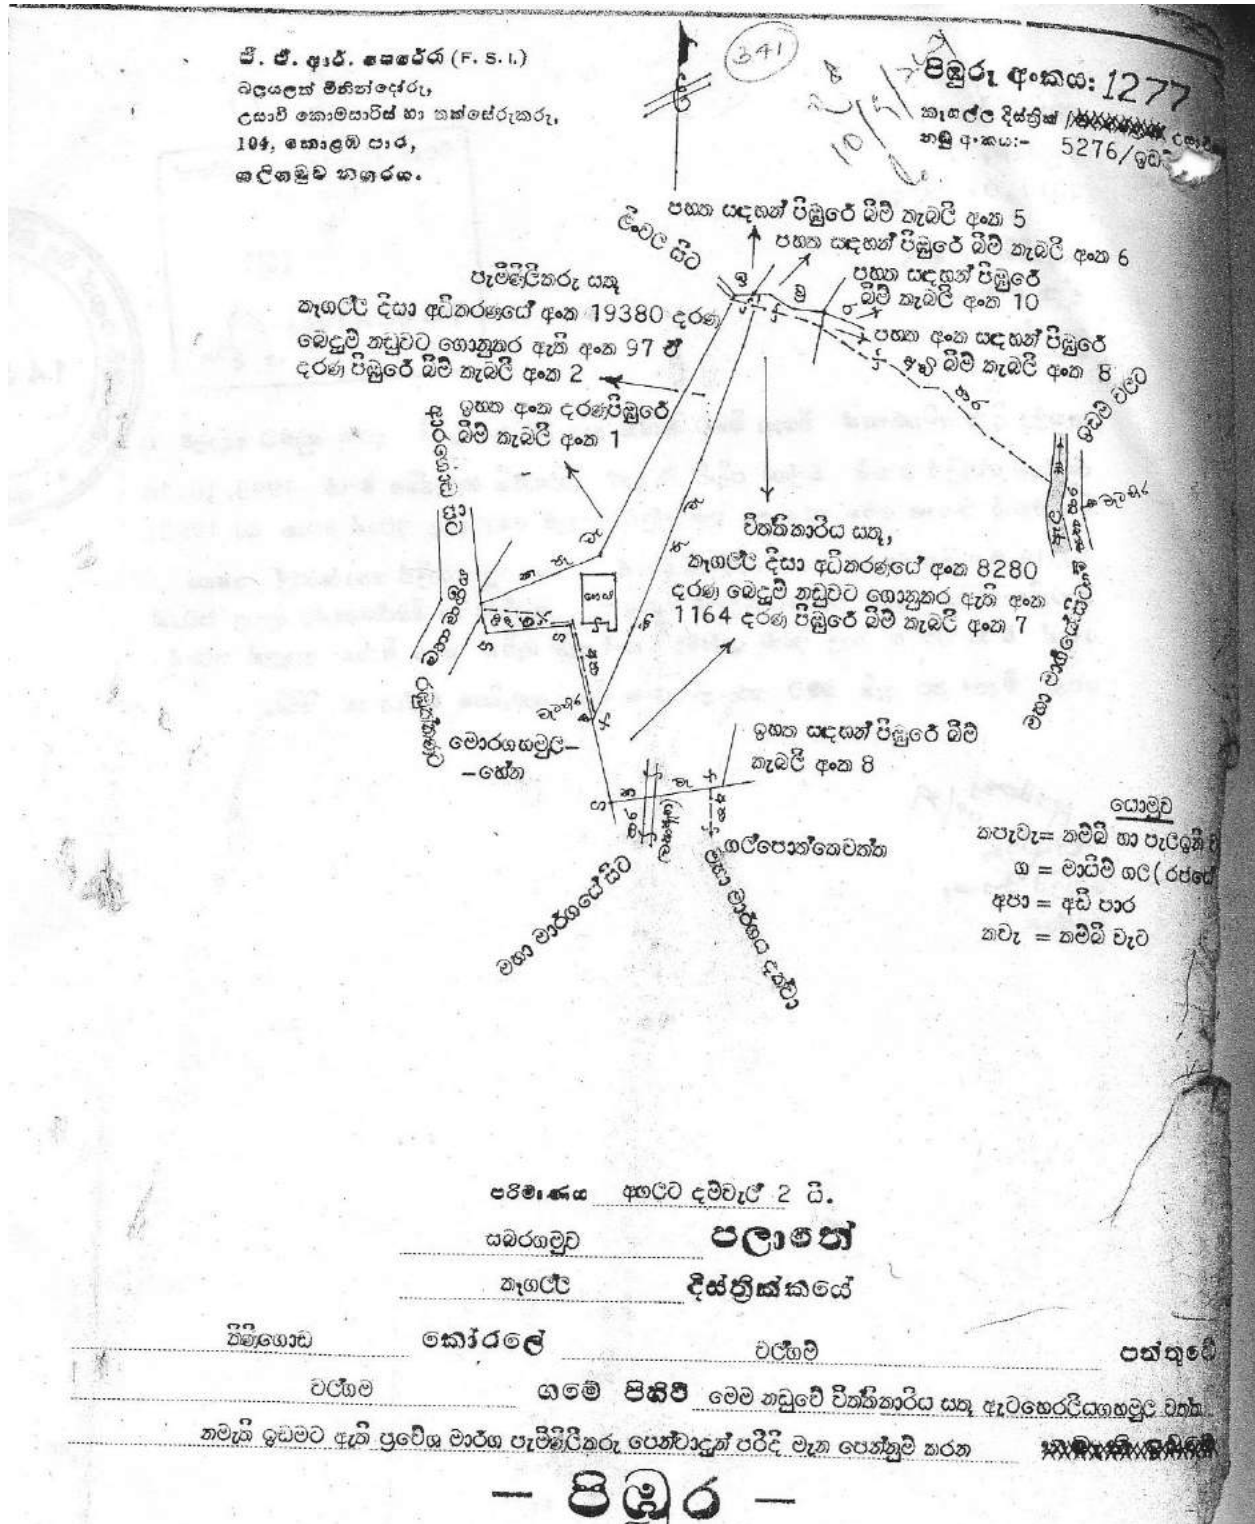 ජී. ඒ. ආර්. පෙරේරා (F. S. I.)
බලයලත් මිනින්දෝරු,
උසාවි කොමසාරිස් හා තක්සේරුකරු,
104, කොළඹ පාර,
ගලිගමුව නගරය.
341
පිඹුරු අංකය: 1277
කෑගල්ල දිස්ත්‍රික්
නඩු අංකය:- 5276/ඉඩම්
පහත සඳහන් පිඹුරේ බිම් කැබලි අංක 5
පහත සඳහන් පිඹුරේ බිම් කැබලි අංක 6
පහත සඳහන් පිඹුරේ
බිම් කැබලි අංක 10
පහත අංක සඳහන් පිඹුරේ
බිම් කැබලි අංක 8
පැමිණිලිකරු සතු
කෑගල්ල දිසා අධිකරණයේ අංක 19380 දරණ
බෙදුම් නඩුවට ගොනුකර ඇති අංක 97 ඒ
දරණ පිඹුරේ බිම් කැබලි අංක 2
ඉහත අංක දරණ පිඹුරේ
බිම් කැබලි අංක 1
ඉඩම් වලට
විත්තිකාරිය සතු,
කෑගල්ල දිසා අධිකරණයේ අංක 8280
දරණ බෙදුම් නඩුවට ගොනුකර ඇති අංක
1164 දරණ පිඹුරේ බිම් කැබලි අංක 7
ගෙය
මහා මාර්ගයේ සිට
ඉහත සඳහන් පිඹුරේ බිම්
කැබලි අංක 8
මොරගහමුල-
-හේන
ගල්පොත්තෙවත්ත
මහා මාර්ගයේ සිට
මහා මාර්ගය දක්වා
යොමුව
කපැවැ= කම්බි හා පැලඉනි ව
ග = මායිම් ගල (රජයේ
අපා = අඩි පාර
කවැ = කම්බි වැට
පරිමාණය අඟලට දම්වැල් 2 යි.
සබරගමුව පලාතේ
කෑගල්ල දිස්ත්‍රික්කයේ
කිණිගොඩ කෝරලේ වල්ගම් පත්තුවේ
වල්ගම ගමේ පිහිටි මෙම නඩුවේ විත්තිකාරිය සතු ඇටහෙරලියගහමුල වත්ත
නමැති ඉඩමට ඇති ප්‍රවේශ මාර්ග පැමිණිලිකරු පෙන්වාදුන් පරිදි මැන පෙන්නුම් කරන
— පිඹුර —